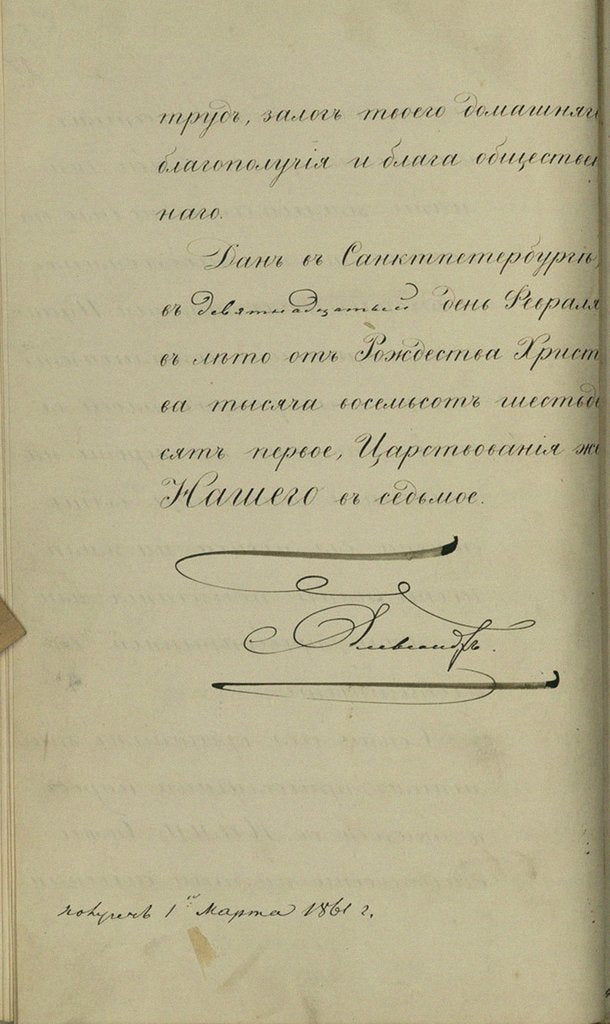 трудъ, залогъ твоего домашняго
благополучія и блага обществен
наго.
Данъ въ Санктпетербургѣ,
въ девятнадцатый день Февраля
въ лѣто отъ Рождества Христо
ва тысяча восемьсотъ шестьде
сятъ первое, Царствованія же
Нашего въ седьмое.
Александръ.
1го Марта 1861 г.